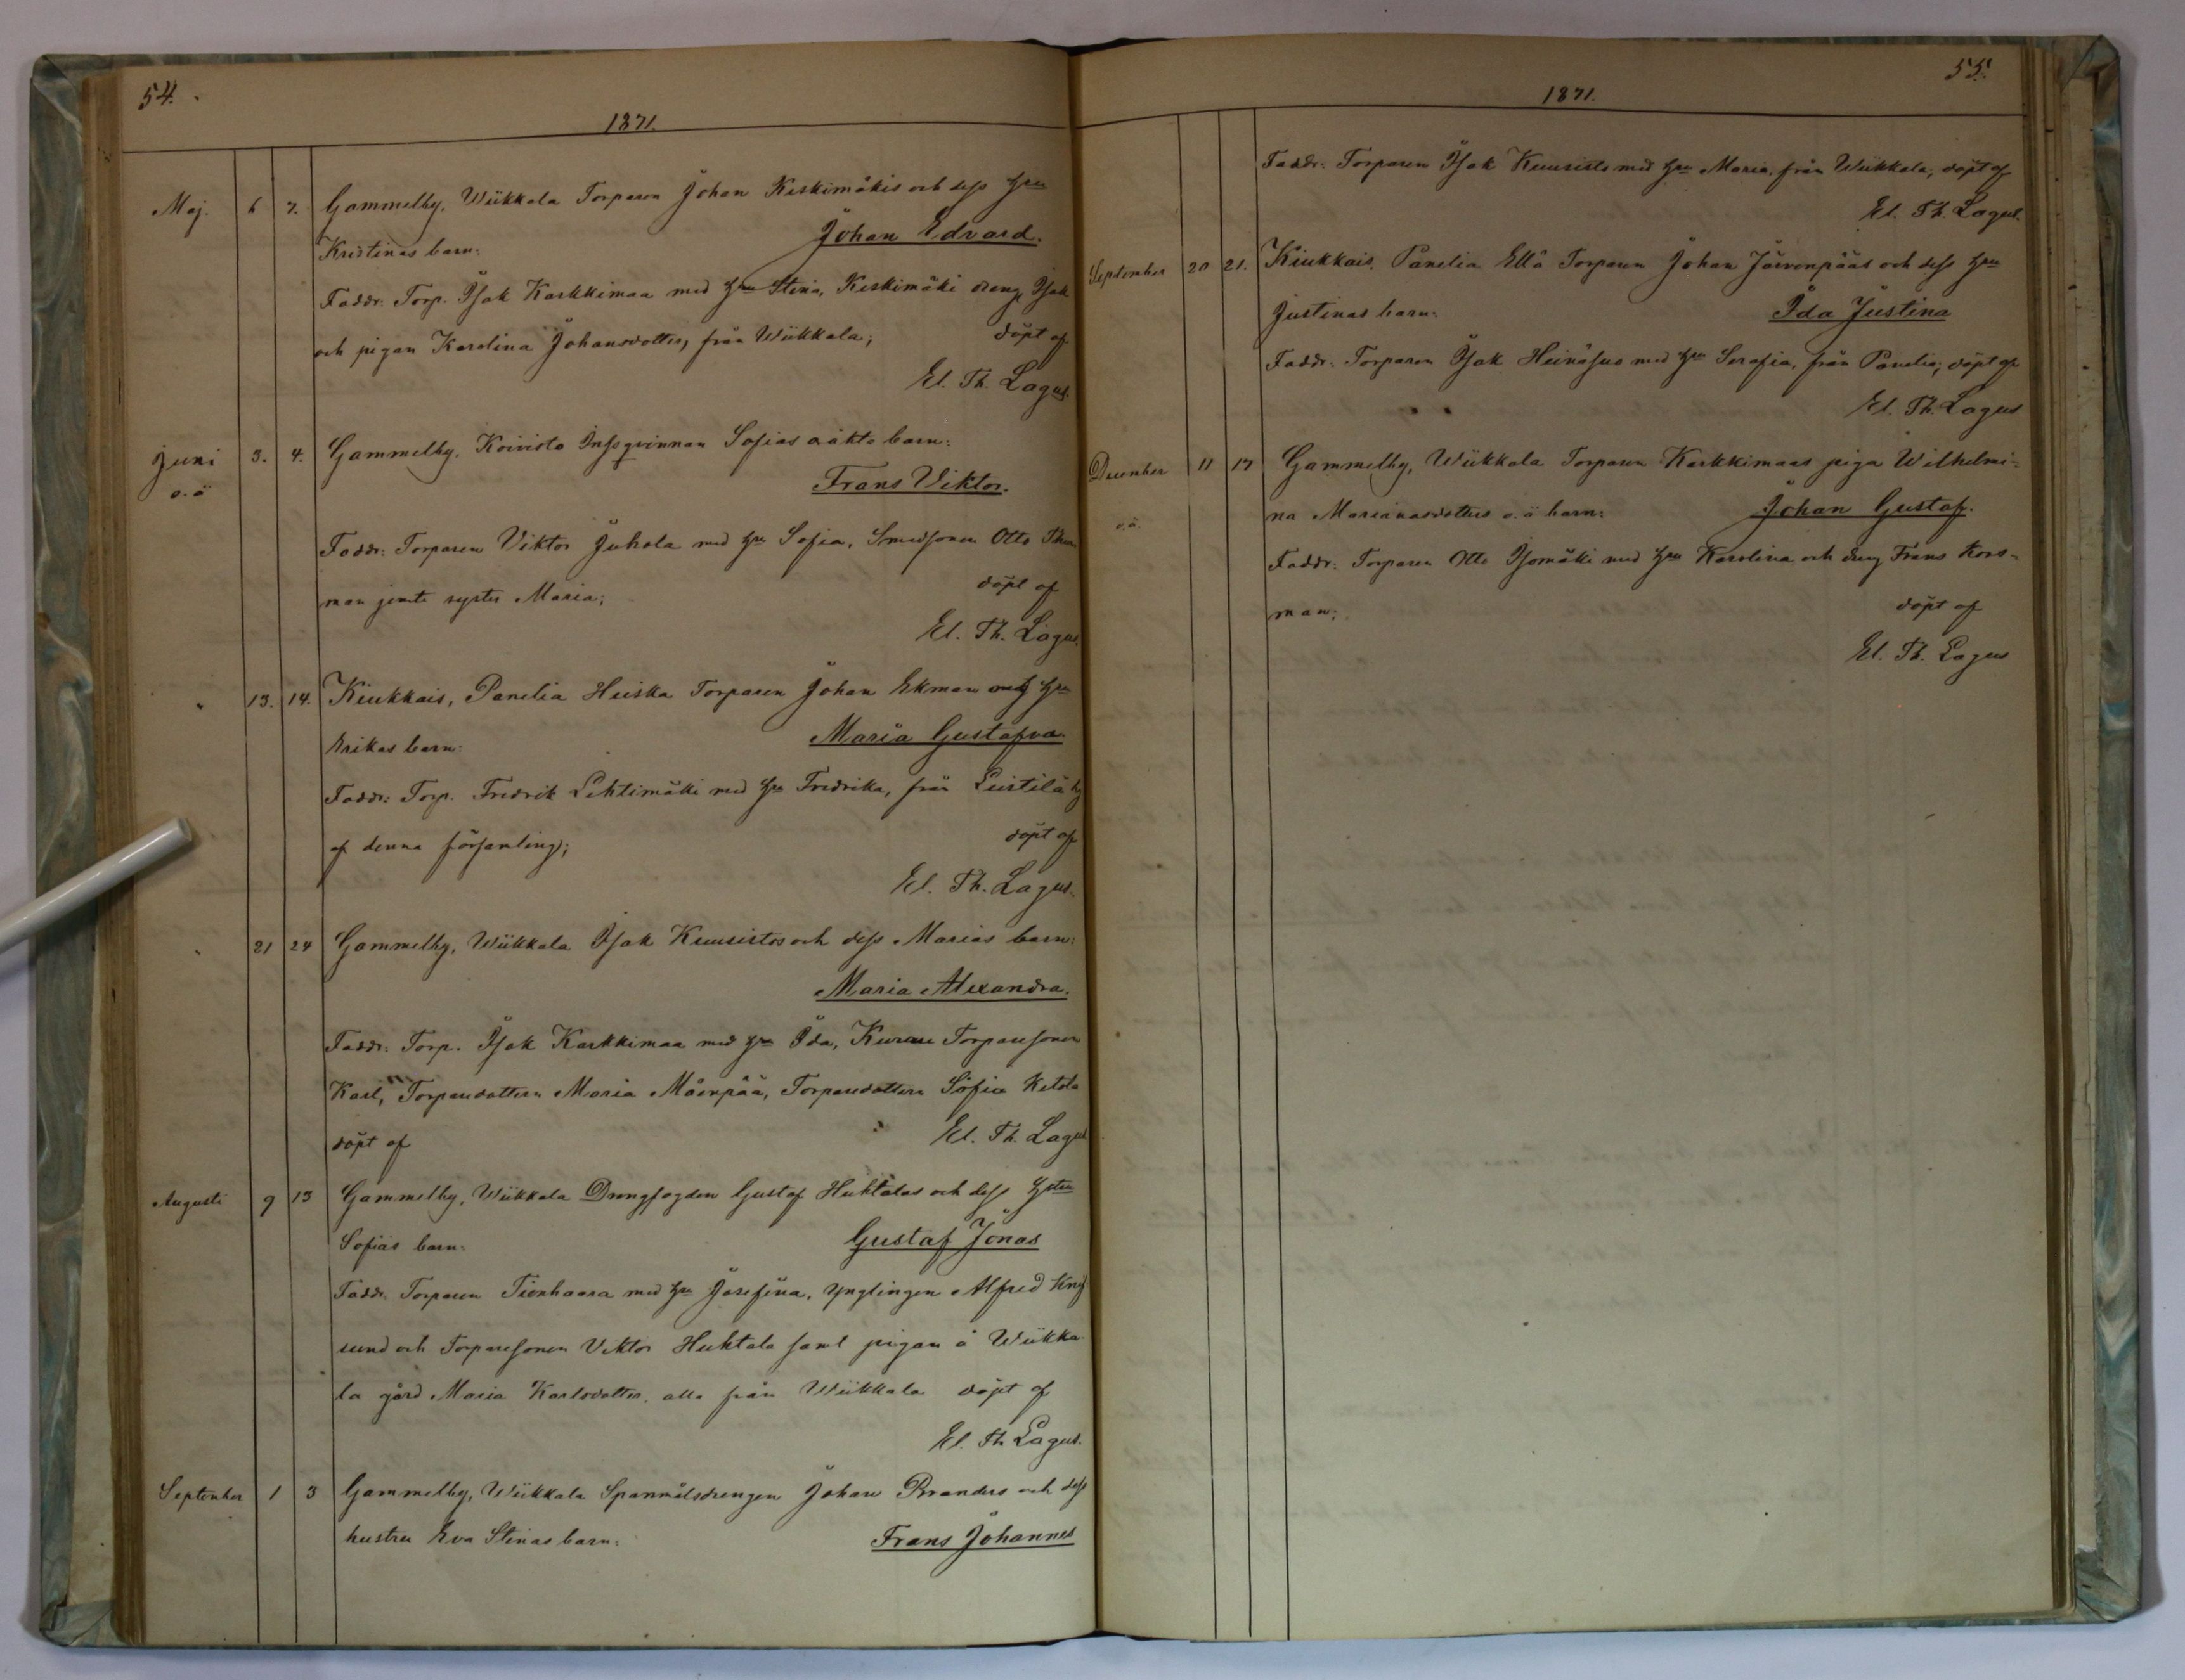 54.
1871.
Maj. 6 7. Gammelby, Wiikkala Torparen Johan Keskimäkis och dess hru
Kristinas barn: Johan Edvard.
Faddr: Torp. Isak Karkkimaa med hru Stina, Keskimäki dreng Isak
och pigan Karolina Johansdotter, från Wiikkala; döpt af
El. Th. Lagus.
Juni 3. 4. Gammelby, Koivisto Inhsqvinnan Sofias oäkta barn:
o.ä Frans Viktor.
Faddr: Torparen Viktor Juhola med hru Sofia, Smedsonen Otto
man jemte syster Maria; döpt af
El. Th. Lagus.
" 13. 14. Kiukkais, Panelia Huiska Torparen Johan Ekman och hru
Erikas barn: Maria Gustafva.
Faddr: Torp. Fredrik Lehtimäki med hru Fredrika, från Leistilä by
af denna församling; döpt af
El. Th. Lagus.
" 21 24 Gammelby, Wiikkala Isak Kuusistos och dess Marias barn:
Maria Alexandra.
Faddr: Torp. Isak Karkkimaa med hru Ida, Torparesonen
Karl, Torparedottern Maria Mäenpää, Torparedottern Sofia Ketola
döpt af El. Th. Lagus
Augusti 9 13 Gammelby, Wiikkala Drengfogden Gustaf Huhtalas och dess hstru
Sofias barn: Gustaf Jonas
Faddr. Torparen Tienhaara med hru Josefina, Ynglingen Alfred
sund och Torparesonen Viktor Huhtala samt pigan å Wiikka-
la gård Maria Karlsdotter, alla från Wiikkala döpt af
El. Th Lagus.
September 1 3 Gammelby, Wiikkala Spanmålsdrengen Johan Branders och dess
hustru Eva Stinas barn: Frans Johannes
55.
1871.
Faddr: Torparen Isak Kuusisto med hru Maria, från Wiikkala, döpt af
El. Th. Lagus.
September 20 21. Kiukkais, Panelia Ellä Torparen Johan Järvenpääs och dess hru
Justinas barn: Ida Justina
Faddr: Torparen Isak Heinäsuo med hru Serafia, från Panelia; döpt af
El. Th. Lagus
December 11 17 Gammelby, Wiikkala Torparen Karkkimaas piga Wilhelmi-
o.ä. na Marianasdotters o.ä barn: Johan Gustaf.
Faddr: Torparen Otto Isomäki med hru Karolina och dreng Frans Kors-
man; döpt af
El. Th. Lagus